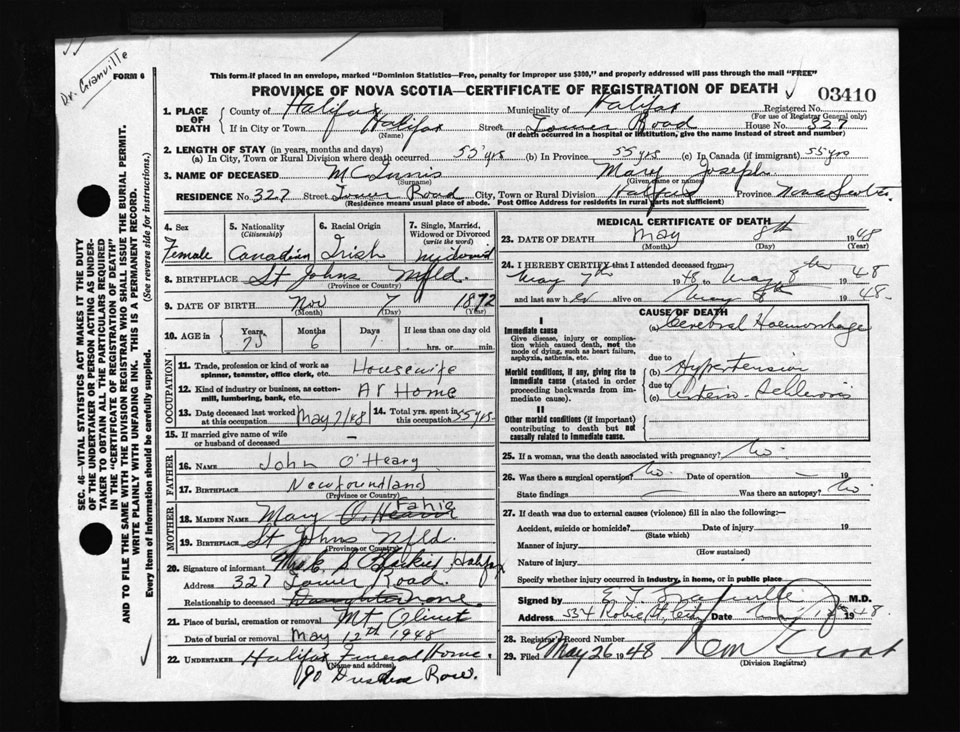 Dr. Granville
FORM 6
This form if placed in an envelope, marked "Dominion Statistics—Free, penalty for improper use $300," and properly addressed will pass through the mail "FREE"
PROVINCE OF NOVA SCOTIA—CERTIFICATE OF REGISTRATION OF DEATH
03410
1. PLACE OF DEATH
County of Halifax Municipality of Halifax Registered No.
(For use of Registrar General only)
If in City or Town Halifax Street Tower Road House No. 327
(Name) (If death occurred in a hospital or institution, give the name instead of street and number)
2. LENGTH OF STAY (in years, months and days)
(a) In City, Town or Rural Division where death occurred 55 yrs (b) In Province 55 yrs (c) In Canada (if immigrant) 55 yrs
3. NAME OF DECEASED McInnis Mary Joseph
(Surname) (Given name or names)
RESIDENCE No. 327 Street Tower Road City, Town or Rural Division Halifax Province Nova Scotia
(Residence means usual place of abode. Post Office Address for residents in rural parts not sufficient)
4. Sex Female
5. Nationality (Citizenship) Canadian
6. Racial Origin Irish
7. Single, Married, Widowed or Divorced (write the word) Widowed
8. BIRTHPLACE St Johns Nfld
(Province or Country)
9. DATE OF BIRTH Nov 7 1872
(Month) (Day) (Year)
10. AGE in Years 75 Months 6 Days 1 If less than one day old
hrs. or min.
OCCUPATION
11. Trade, profession or kind of work as spinner, teamster, office clerk, etc. Housewife
12. Kind of industry or business, as cotton-mill, lumbering, bank, etc. At Home
13. Date deceased last worked at this occupation May 7/48 14. Total yrs. spent in this occupation 55 yrs.
15. If married give name of wife or husband of deceased —
FATHER
16. NAME John O'Heary
17. BIRTHPLACE Newfoundland
(Province or Country)
MOTHER
18. MAIDEN NAME Mary Fahie
19. BIRTHPLACE St Johns Nfld.
(Province or Country)
20. Signature of informant Halifax
Address 327 Tower Road.
Relationship to deceased Daughter none.
21. Place of burial, cremation or removal Mt. Olivet
Date of burial or removal May 12th 1948
22. UNDERTAKER Halifax Funeral Home.
(Name and address)
90 Row.
MEDICAL CERTIFICATE OF DEATH
23. DATE OF DEATH May 8th 1948
(Month) (Day) (Year)
24. I HEREBY CERTIFY that I attended deceased from
May 7th 1948 to May 8th 1948
and last saw h er alive on May 8th 1948.
CAUSE OF DEATH
I
Immediate cause
Give disease, injury or complication which caused death, not the mode of dying, such as heart failure, asphyxia, asthenia, etc.
(a) Cerebral Haemorrhage
due to
Morbid conditions, if any, giving rise to immediate cause (stated in order proceeding backwards from immediate cause).
(b) Hypertension
due to
(c)
II
Other morbid conditions (if important) contributing to death but not causally related to immediate cause.
25. If a woman, was the death associated with pregnancy? No.
26. Was there a surgical operation? No. Date of operation — 19
State findings — Was there an autopsy? No
27. If death was due to external causes (violence) fill in also the following:—
Accident, suicide or homicide? Date of injury 19
(State which)
Manner of injury
(How sustained)
Nature of injury
Specify whether injury occurred in industry, in home, or in public place
Signed by M.D.
Address 534 Robie St, City Date 1948.
28. Registrar's Record Number
29. Filed May 26 1948
(Division Registrar)
SEC. 46—VITAL STATISTICS ACT MAKES IT THE DUTY OF THE UNDERTAKER OR PERSON ACTING AS UNDERTAKER TO OBTAIN ALL THE PARTICULARS REQUIRED IN THE "CERTIFICATE OF REGISTRATION OF DEATH" AND TO FILE THE SAME WITH THE DIVISION REGISTRAR WHO SHALL ISSUE THE BURIAL PERMIT.
WRITE PLAINLY WITH UNFADING INK. THIS IS A PERMANENT RECORD.
Every item of information should be carefully supplied. (See reverse side for instructions.)